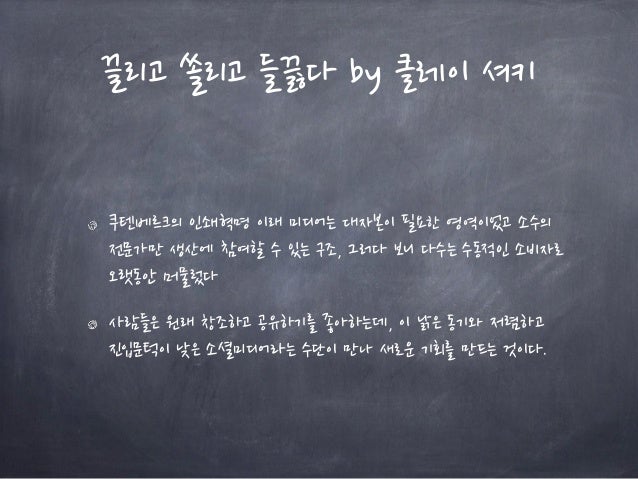 끌리고 쏠리고 들끓다 by 클레이 셔키
쿠텐베르크의 인쇄혁명 이래 미디어는 대자본이 필요한 영역이었고 소수의
전문가만 생산에 참여할 수 있는 구조, 그러다 보니 다수는 수동적인 소비자로
오랫동안 머물렀다
사람들은 원래 창조하고 공유하기를 좋아하는데, 이 낡은 동기와 저렴하고
진입문턱이 낮은 소셜미디어라는 수단이 만나 새로운 기회를 만드는 것이다.